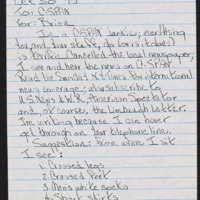 To: C-SPAN
for: Brian
I'm a C-SPAN junkie; everything
is Cancelled the local newspaper,
I see and hear the news on C-SPAN.
Read the Sunday N.Y. Times for international
news coverage; also subscribe to
U.S. News & W.R., American Spectator
and, of course, the Limbaugh Letter.
I'm writing because I can never
get through on your telephone lines.
Suggestion: From where I sit
I see:
1. Crossed legs
2. Crossed feet
3. Men's white socks
4. Short skirts